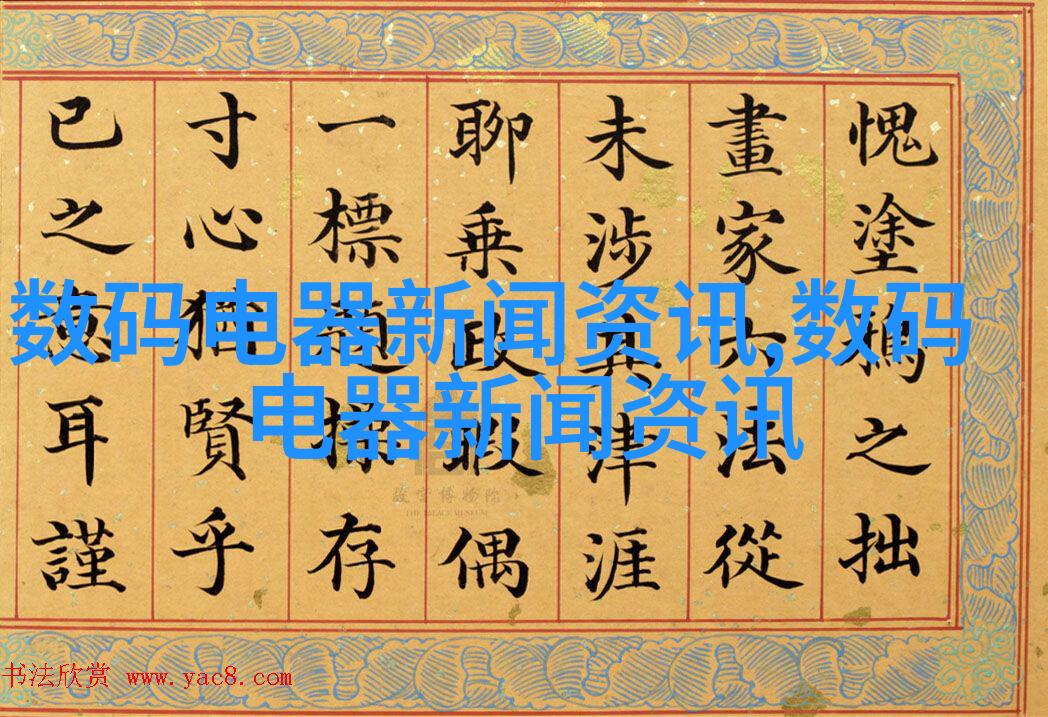 愧塗鴉之拙
畫家六法從
未涉其津涯
聊乘政暇偶
一標操存
寸心猶賢乎
已之意耳謹
数码电器新闻资讯,数码
电器新闻资讯
故宫博物院
THE PALACE MUSEUM
书法欣赏 www.yac8.com